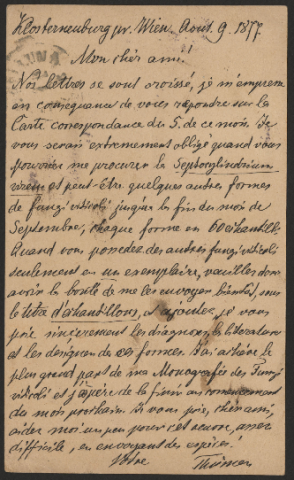 Klosterneuburg pr. Wien. Aout. 9. 1877.
Mon cher ami!
Nos lettres se sont croissé, je m'empresse
en consequance de vous répondre sur la
Carte correspondance du 5. de ce mois. Je
vous serais extremement obligé quand vous
pourriez me procurer la Septocylindrium
virens et peut-être quelques autres formes
de fungi viticoli jusqu'a la fin du mois de
Septembre, chaque forme en 60 échantill.
Quand vous possedez des autres fungi viticoli
seulement en un exemplaire, veuilles donc
avoir la bonté de me les envoyer bientôt, sous
le titre d'échantillons, et ajoutez, je vous
prie sincèrement les diagnoses, la literature
et les designs de ces formes. J'ai achevé le
plus grand part de ma Monografie des Fungi
viticoli et j'espère de la finir au commencement
du mois prochain. Je vous prie, cher ami,
aidez moi un peu pour cet oeuvre, assez
difficile, en envoyant des espèces!
Votre Thümen